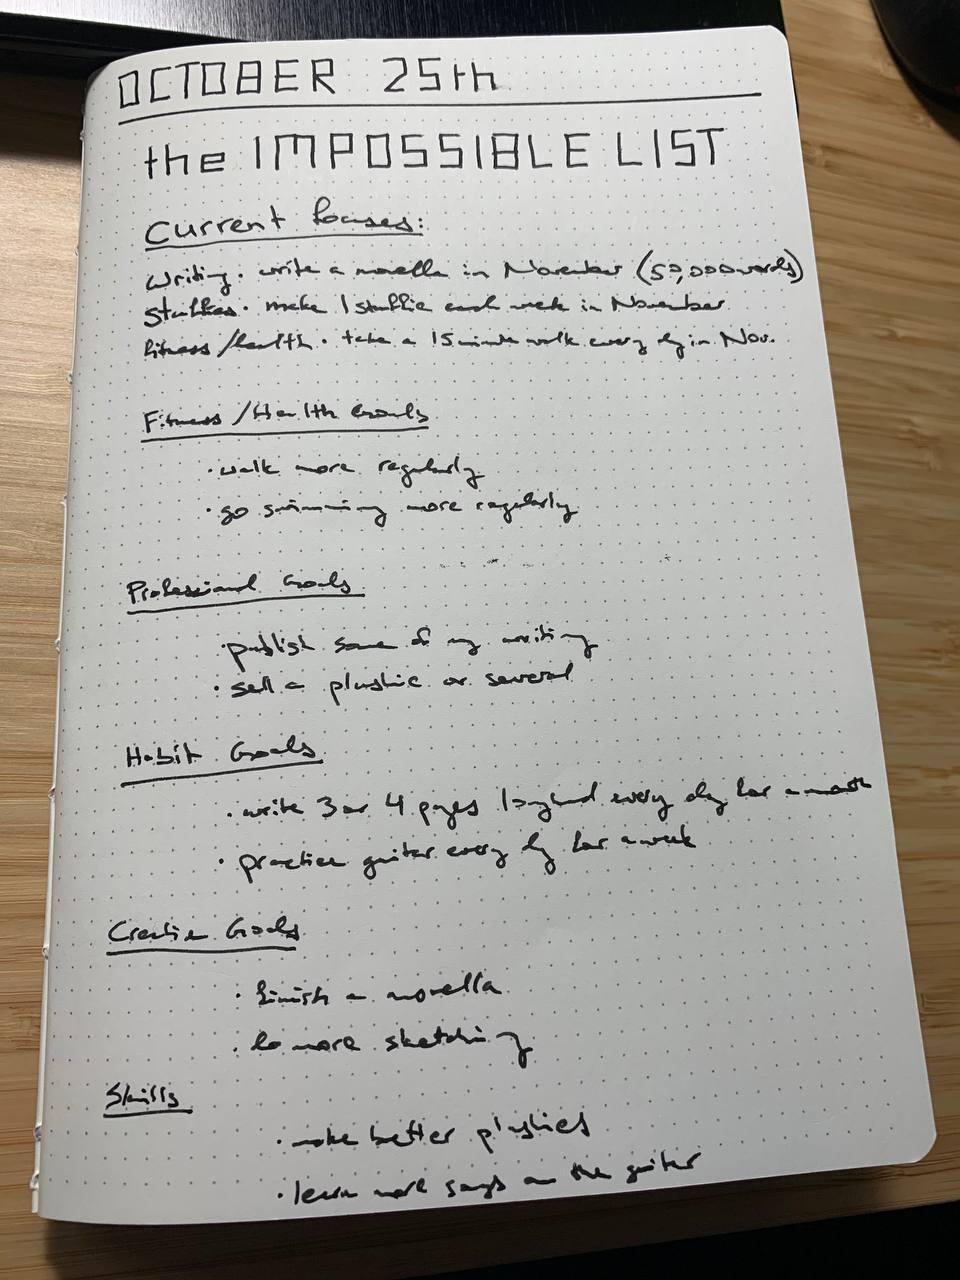 OCTOBER 25th
the IMPOSSIBLE LIST
Current focuses:
Writing · write a novella in November (50,000 words)
Stuffies · make 1 stuffie each week in November
fitness/health · take a 15 minute walk every day in Nov.
Fitness/Health Goals
· walk more regularly
· go swimming more regularly
Professional Goals
· publish some of my writing
· sell a plushie or several
Habit Goals
· write 3 or 4 pages longhand every day for a month
· practice guitar every day for a week
Creative Goals
· finish a novella
· do more sketching
Skills
· make better plushies
· learn more songs on the guitar